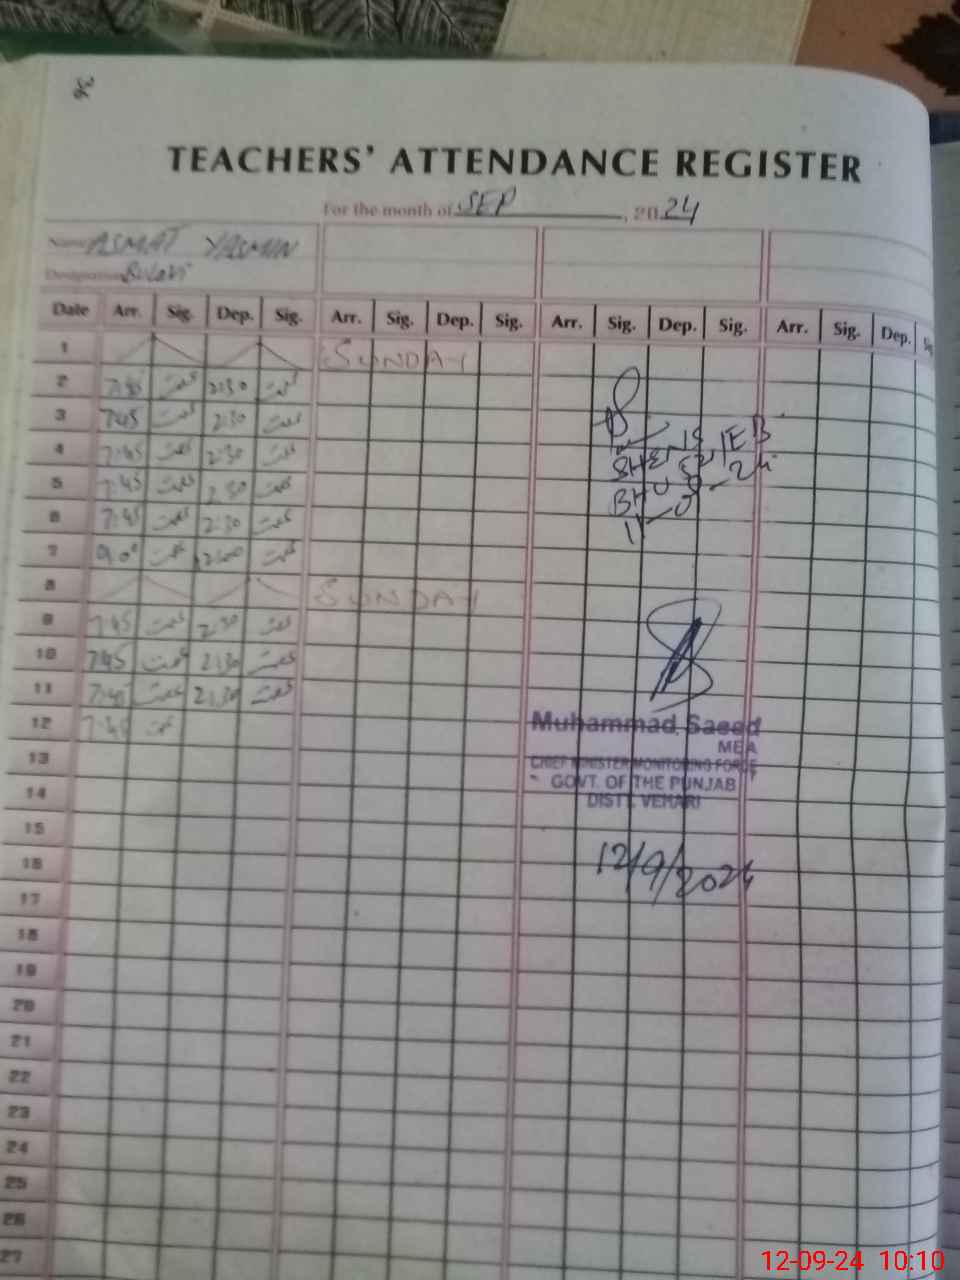 TEACHERS' ATTENDANCE REGISTER
For the month of SEP, 2024
Name ASMAT YASMIN
Designation
Date Arr. Sig. Dep. Sig. Arr. Sig. Dep. Sig. Arr. Sig. Dep. Sig. Arr. Sig. Dep.
1 SUNDAY
2 2:30
3 7:45 عصمت 2:30 عصمت
4 7:45 عصمت 2:30 عصمت
5 7:45 عصمت 2:30 عصمت
6 7:45 عصمت 2:30 عصمت
7 عصمت عصمت
8 SUNDAY
9 7:45 عصمت 2:30 عصمت
10 7:45 عصمت 2:30 عصمت
11 عصمت 2:30 عصمت
12 عصمت
Muhammad Saeed
MEA
13 CHIEF MINISTER MONITORING FORCE
GOVT. OF THE PUNJAB
14 DISTT. VEHARI
15
16 12/9/2024
17
18
19
20
21
22
23
24
25
26
27
12-09-24 10:10